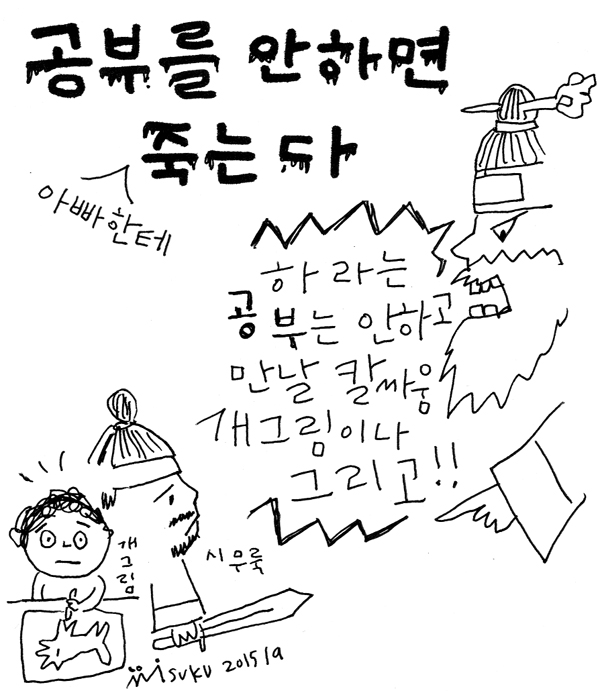 공부를 안하면
죽는다
아빠한테
하라는
공부는 안하고
만날 칼싸움
개그림이나
그리고!!
개그림
시무룩
misuku 2015/9